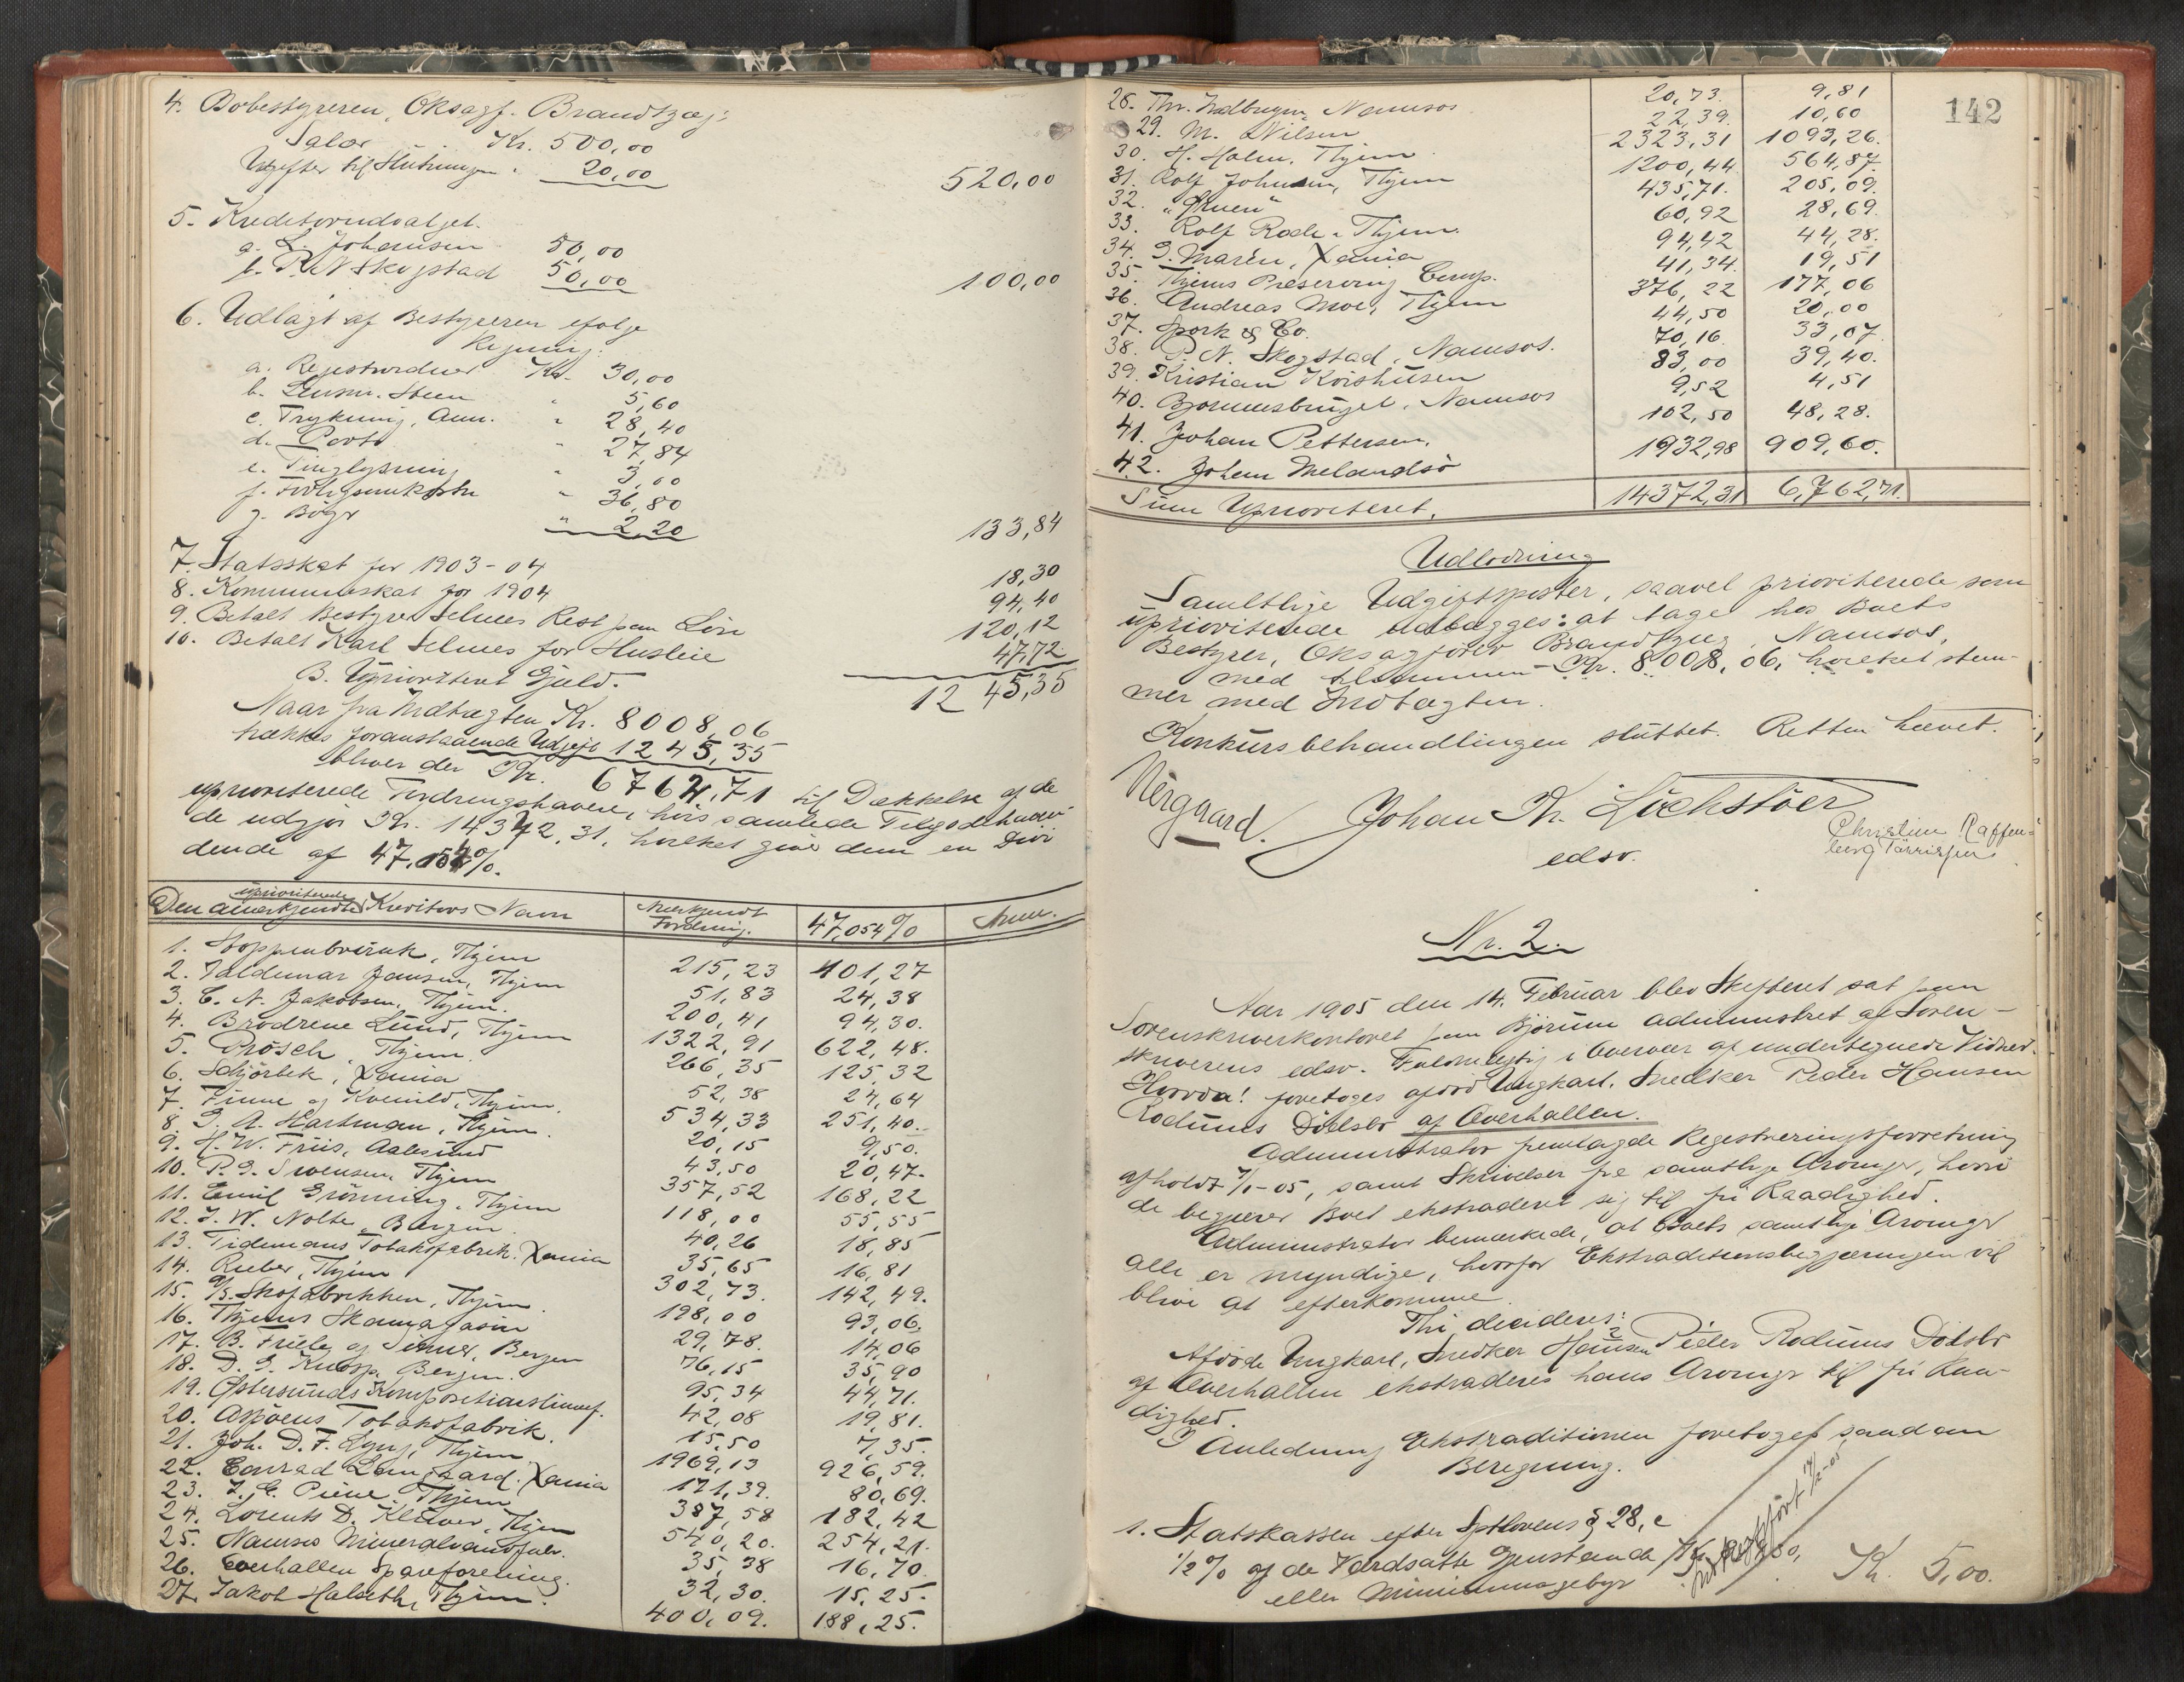 4. Bobestyreren, Oksagf. Brandtzæg:
Salær Kr. 500,00
Udgifter til Slutningen " 20,00 520,00
5. Kreditorudvalget.
a. L. Johansen 50,00
b. P. N. Skogstad 50,00 100,00
6. Udlagt af Bestyreren ifølge
Regning:
a. Registrering Kr. 30,00
b. Lensm. Steen " 5,60
c. Trykning, Ann. " 28,40
d. Porto " 27,84
e. Tinglysning " 3,00
f. " 36,80
g. Bøger " 2,20 133,84
7. Statsskat for 1903-04 18,30
8. Kommuneskat for 1904 94,40
9. Betalt Bestyrer Selnes Rest paa Løn 120,12
10. Betalt Karl Selnes for Husleie 47,72
12 45,35
B. Uprioriteret Gjeld.
Naar fra Indtægten Kr. 8008,06
trækkes foranstaaende Udgift 1245,35
bliver der Kr. 6762,71 til Dækkelse af de
uprioriterede Fordringshavere, hvis samlede Tilgodehaven-
de udgjør Kr. 14372,31, hvilket giver dem en Divi
dende af 47,054%.
uprioriterede
Den anerkjendte Kreditors Navn Anerkjendt Fordring. 47,054% Anm.
1. Stoppenbrink, Thjem 215,23 101,27
2. Valdemar Jansen, Thjem 51,83 24,38
3. C. N. Jakobsen, Thjem. 200,41 94,30.
4. Brødrene Lund, Thjem 1322,91 622,48.
5. Prösch, Thjem. 266,35 125,32
6. Schjørbek, Xania 52,38 24,64
7. Finne og Kvenild, Thjem. 534,33 251,40.
8. I. A. Hartman, Thjem. 20,15 9,50.
9. H. W. Friis, Aalesund 43,50 20,47.
10. P. I. Svensen, Thjem 357,52 168,22
11. Emil Grönning, Thjem 118,00 55,55
12. J. W. Nolte, Bergen 40,26 18,85
13. Tidemans Tobaksfabrik. Xania 35,65 16,81
14. Rieber, Thjem 302,73. 142,49.
15. A/S. Skofabrikken, Thjem. 198,00 93,06.
16. Thjems Skomagasin 29,78. 14,06
17. B. Friele og Sønner, Bergen 76,15 35,90
18. D. I. Knoop, Bergen. 95,34 44,71.
19. Østersunds Kompositionslinef. 42,08 19,81.
20. Aspöens Tobaksfabrik. 15,50 7,35.
21. Joh. D. F. Lyng, Thjem 1969,13 926,59.
22. Conrad Langaard. Xania 171,39. 80,69.
23. I. C. Piene. Thjem 387,58 182,42
24. Lorents D. Klüver, Thjem 540,20. 254,21.
25. Namsos Mineralvandfabr. 35,38 16,70.
26. Overhallen Spareforening. 32,30. 15,25.
27. Jakob Halseth, Thjem. 400,09. 188,25.
142
28. Thv. Namsos 20,73. 9,81
29. M. Nilsen 22,39. 10,60
30. H. Holm, Thjem 2323,31 1093,26.
31. Rolf Johnsen, Thjem 1200,44 564,87.
32. 435,71. 205,09.
33. Rolf Rode, Thjem. 60,92 28,69.
34. I. Marén, Xania 94,42 44,28.
35. Thjems Preserving Comp. 41,34. 19,51
36. Andreas Moe, Thjem 376,22 177,06
37. Spork & Co. 44,50 20,00
38. P. N. Skogstad, Namsos. 70,16. 33,07.
39. Kristian Korshusen 83,00 39,40.
40. Namsos 9,52 4,51
41. Johan Pettersen. 102,50 48,28.
42. Johan Melandsö 1932,98 909,60.
Sum Uprioriteret. 14372,31 6,762,71.
Udlodning
Samtlige Udgiftsposter, saavel prioriterede som
uprioriterede udlægges: at tage hos Boets
Bestyrer, Oksagfører Brandtzæg, Namsos,
med tilsammen Kr. 8008,06, hvilket stem-
mer med Indtægten.
Konkursbehandlingen sluttet. Retten hævet.
Nergaard. Johan Kr. Löchstöer
edsv. Christine Raffen-
berg Tørrissen
Nr. 2.
Aar 1905 den 14. Februar blev Skifteret sat paa
Sorenskriverkontoret paa Bjørum administret af Soren-
skriverens edsv. Fuldmægtig i Overvær af undertegnede Vidner.
Hvorda! foretoges afdød Ungkarl, Snedker Peder Hansen
Rodums Dödsbo af Overhallen.
Administrator fremlagde Registreringsforretning
afholdt 7/1-05, samt Skrivelser fra samtlige Arvinger, hvori
de begjærer Boet ekstraderet sig til fri Raadighed.
Administrator bemærkede, at Boets samtlige Arvinger
alle er myndige, hvorfor Ekstraditionsbegjæringen vil
blive at efterkomme.
Thi decideres:
Afdøde Ungkarl, Snedker Hansen Peder Rodums Dödsbo
af Overhallen ekstraderes hans Arvinger til fri Raa-
dighed.
I Anledning Ekstraditionen foretoges saadan
Beregning.
1. Statskassen efter Sptlovens § 28, c
1/2 % af de Værdsatte Gjenstande
eller Minimumsgebyr Kr. 5,00.